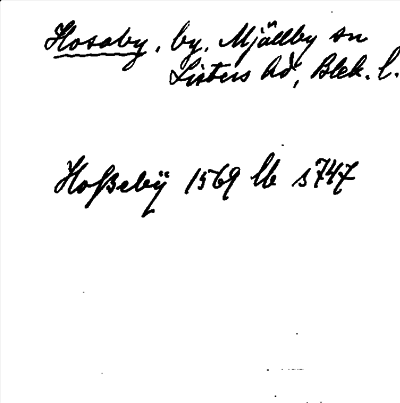 Hosaby, by, Mjällby sn
Listers hd, Blek. l.
Hoßebÿ 1569 lb s747